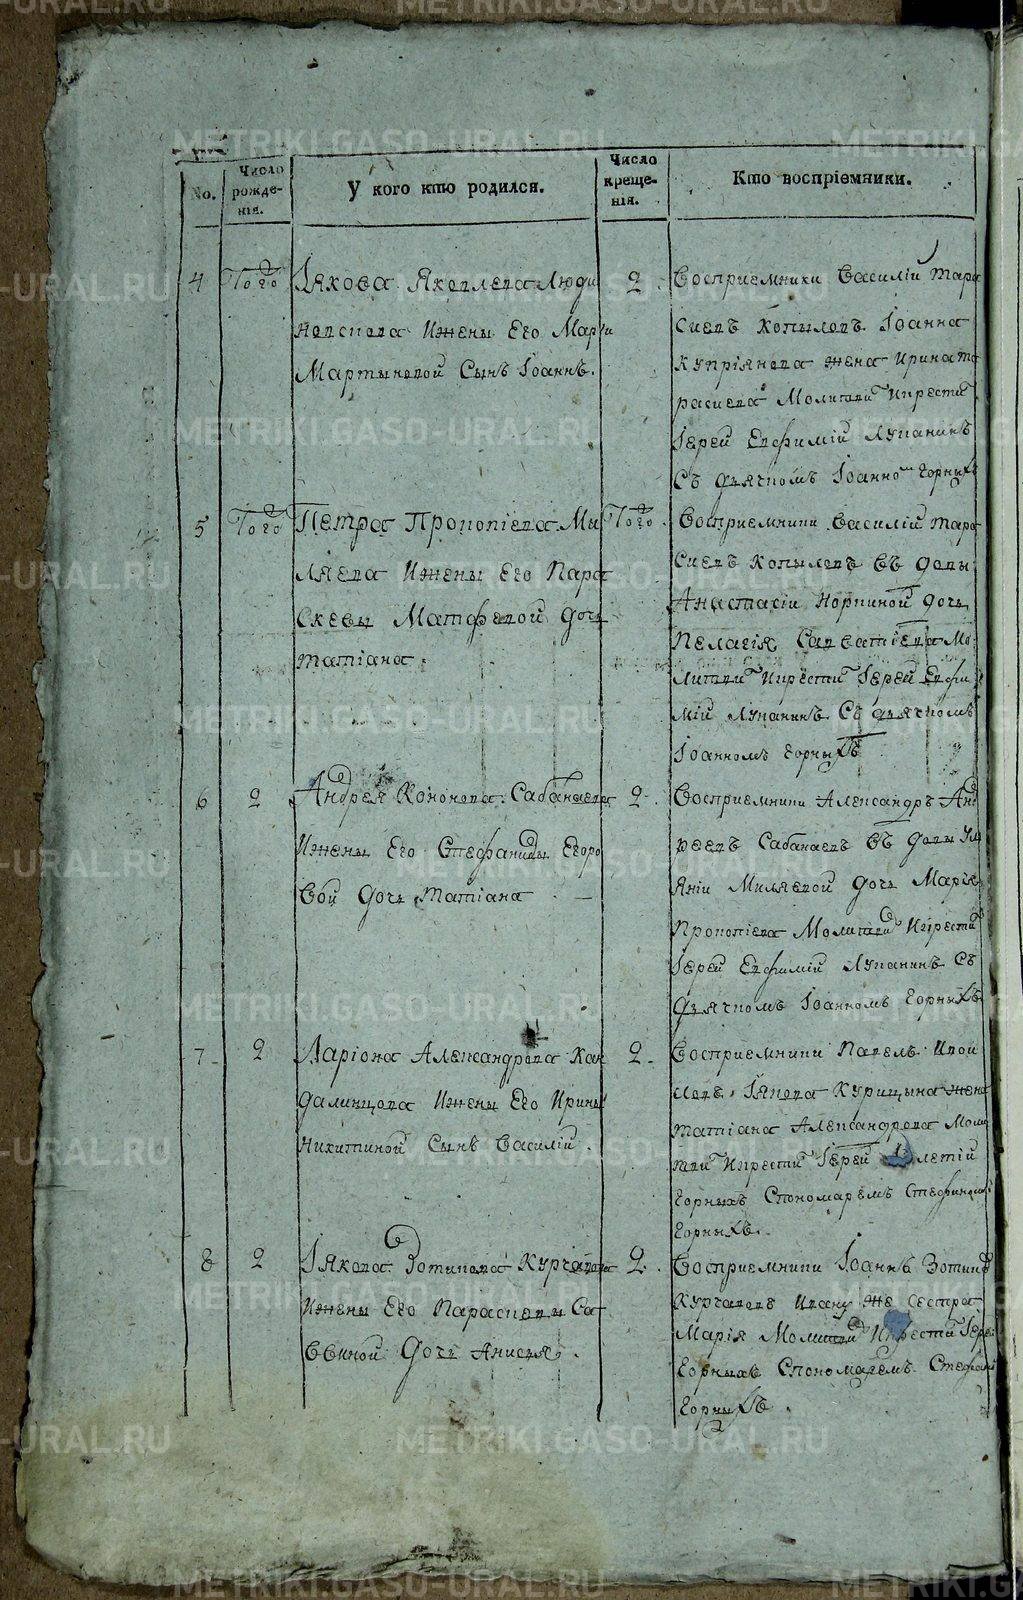 No.
Число рожде-нія.
У кого кто родился.
Число креще-нія.
Кто воспріемники.
4
Того
Іякова Яковлева Люди
новскова Ижены Его Марѳи
Мартыновой Сынъ Іоаннъ.
2
Восприемники Василій тара
сиевъ копыловъ Іоанна
купріянова жена Ирина та
расиева Молитви Икрести
Іерей Евфимій Лупанинъ
Съ дьячкомъ Іоанно Горныхъ
5
Того
Петра Прокопіева Ми
ляева Ижены Его Пара
скевы Матфевой дочь
татіана.
Того.
Восприемники Василій тара
сиевъ копыловъ въ довы
Анастасіи Норкиной дочь
Пелагія Савватіева Мо
литви Икрести Іерей Евфи
мій Лупанинъ Съ дьячкомъ
Іоанномъ горныхъ
6
2
Андрея Кононова Сабанаева
Ижены Его Стефаниды Егоро
вой дочь татіана
2.
Восприемники Александръ Анд
реевъ Сабанаевъ въ довы Ул
яніи Миляевой дочь Марья
Прокопіева Молитви Икрести
Іерей Евфимій Лупанинъ Съ
дьячкомъ Іоанномъ Горныхъ
7
2
Ларіона Александрова Кан
далинцова Ижены Его Ирины
Никитиной Сынъ Василій.
2
Восприемники Павелъ
Іякова Курицына жена
татіана Александрова Моли
тви Икрести Іерей летій
горныхъ Спономаремъ Стефаномъ
горныхъ.
8
2
Іякова Зотикова Курчавова
Ижены Его Параскевы Са
ввиной Дочь Анисья.
2.
Восприемники Іоаннъ Зотикъ
Курчавовъ Ивану же Сестра
Марія Молитви Икрести Іерей
горныхъ Спономаремъ Стефаномъ
горныхъ.
METRIKI.GASO-URAL.RU